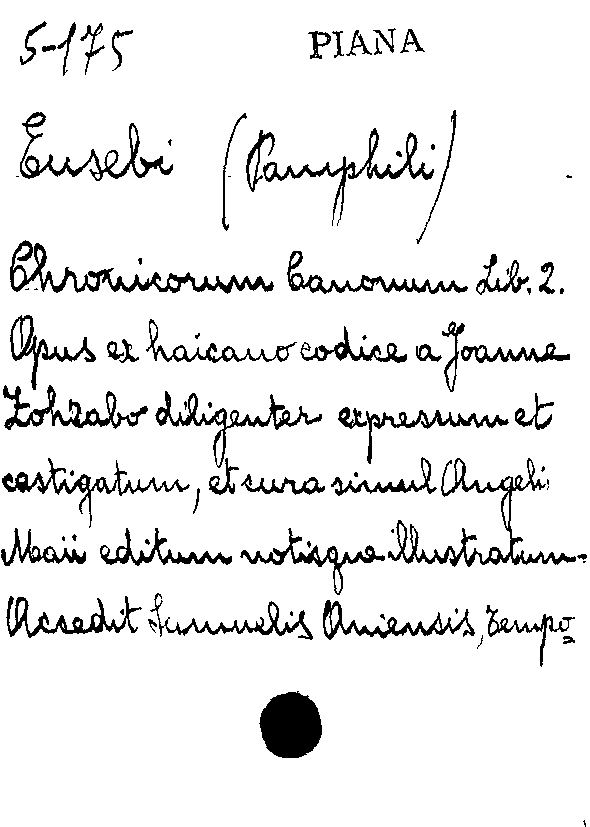 5-175 PIANA
Eusebi (Pamphili)
Chronicorum Canonum Lib. 2.
Opus ex haicano codice a Joanne
Zohzabo diligenter expressum et
castigatum, et cura simul Angeli
Maii editum notisque illustratum.
Accedit Samuelis Aniensis, Tempo=